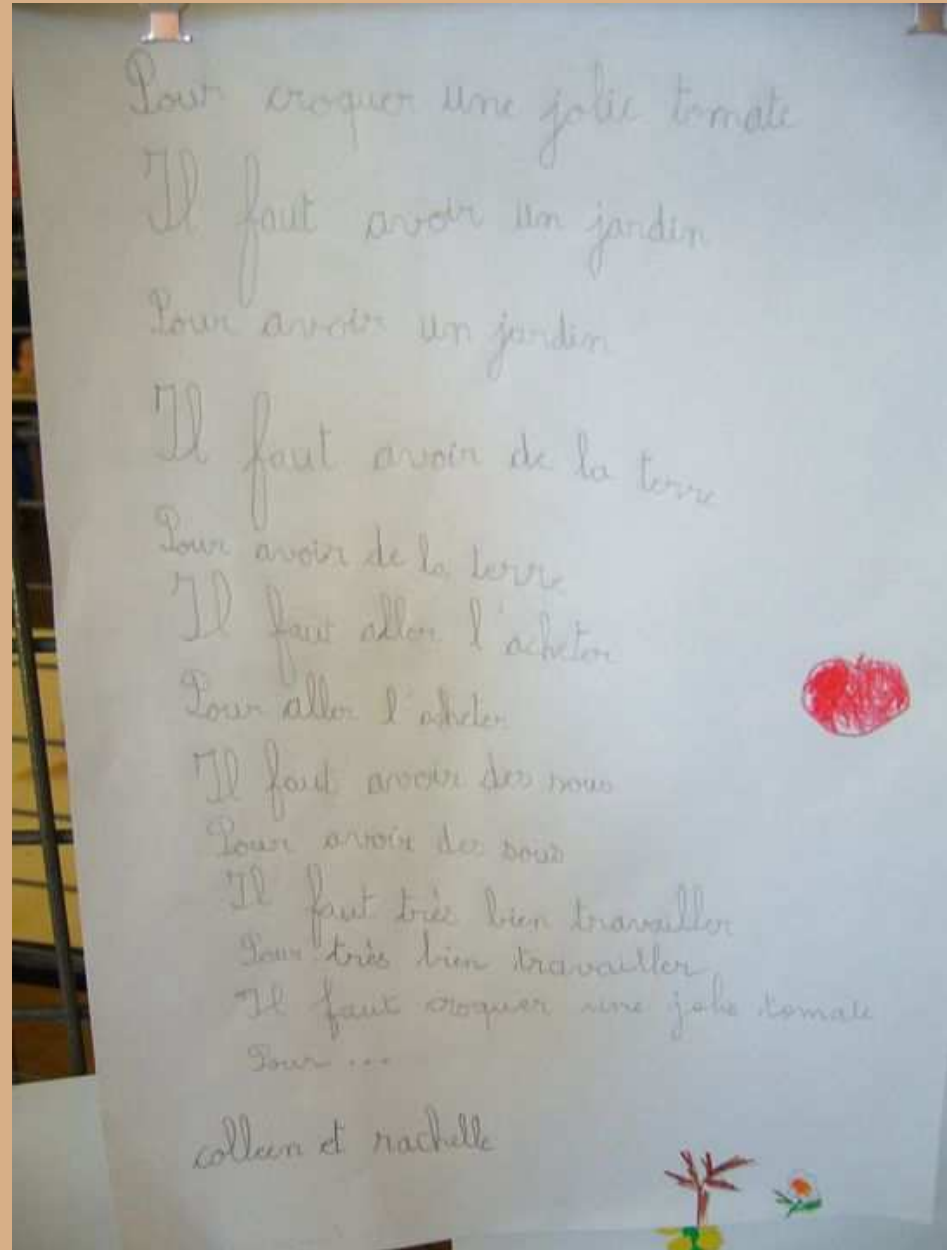 Pour croquer une jolie tomate
Il faut avoir un jardin
Pour avoir un jardin
Il faut avoir de la terre
Pour avoir de la terre
Il faut aller l'acheter
Pour aller l'acheter
Il faut avoir des sous
Pour avoir des sous
Il faut très bien travailler
Pour très bien travailler
Il faut croquer une jolie tomate
Pour ...
colleen et rachelle